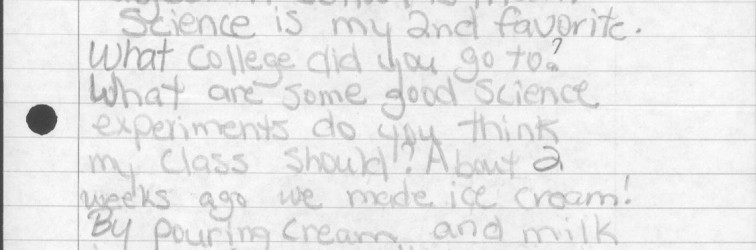 Science is my 2nd favorite.
What college did you go to?
What are some good science
experiments do you think
my class should? About 2
weeks ago we made ice cream!
By pouring cream and milk